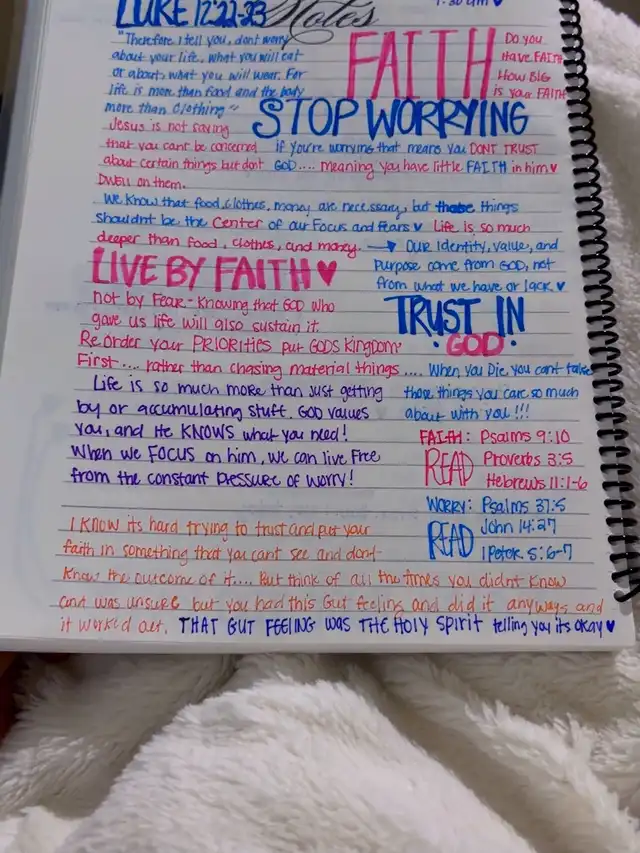 LUKE 12:22-23 Notes
7:30 am ♥
"Therefore I tell you, dont worry
about your life, what you will eat
or about what you will wear. For
life is more than food and the body
more than clothing"
FAITH
Do you
Have FAITH
How BIG
is your FAITH
STOP WORRYING
Jesus is not saying
that you cant be concerned
about certain things but dont
DWELL on them.
if you're worrying that means you DONT TRUST
GOD.... meaning you have little FAITH in him ♥
We know that food, clothes, money are necessary, but those things
shouldnt be the center of our focus and fears ♥ Life is so much
deeper than food, clothes, and money. → Our identity, value, and
purpose come from GOD, not
from what we have or lack. ♥
LIVE BY FAITH ♥
not by Fear - Knowing that GOD who
gave us life will also sustain it.
Re order your PRIORITIES put GODS kingdom
First .... rather than chasing material things ....
TRUST IN
· GOD ·
When you Die, you cant take
those things you care so much
about with you!!!
Life is so much more than just getting
by or accumulating stuff. GOD values
you, and He KNOWS what you need!
When we FOCUS on him, we can live free
from the constant pressure of worry!
FAITH: Psalms 9:10
READ Proverbs 3:5
Hebrews 11:1-6
WORRY: Psalms 37:5
READ John 14:27
1 Peter 5:6-7
I know its hard trying to trust and put your
faith in something that you cant see and dont
know the outcome of it.... But think of all the times you didnt know
and was unsure but you had this Gut feeling and did it anyways and
it worked out. THAT GUT FEELING WAS THE HOLY SPIRIT telling you its okay ♥